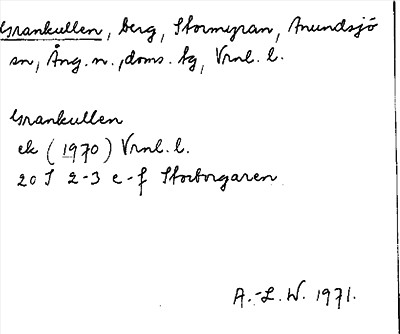 Grankullen, berg, Stormyran, Anundsjö
sn, Ång. n., doms. bg, Vrnl. l.
Grankullen
ek (1970) Vrnl. l.
20 I 2-3 e-f Storborgaren
A.-L. W. 1971.